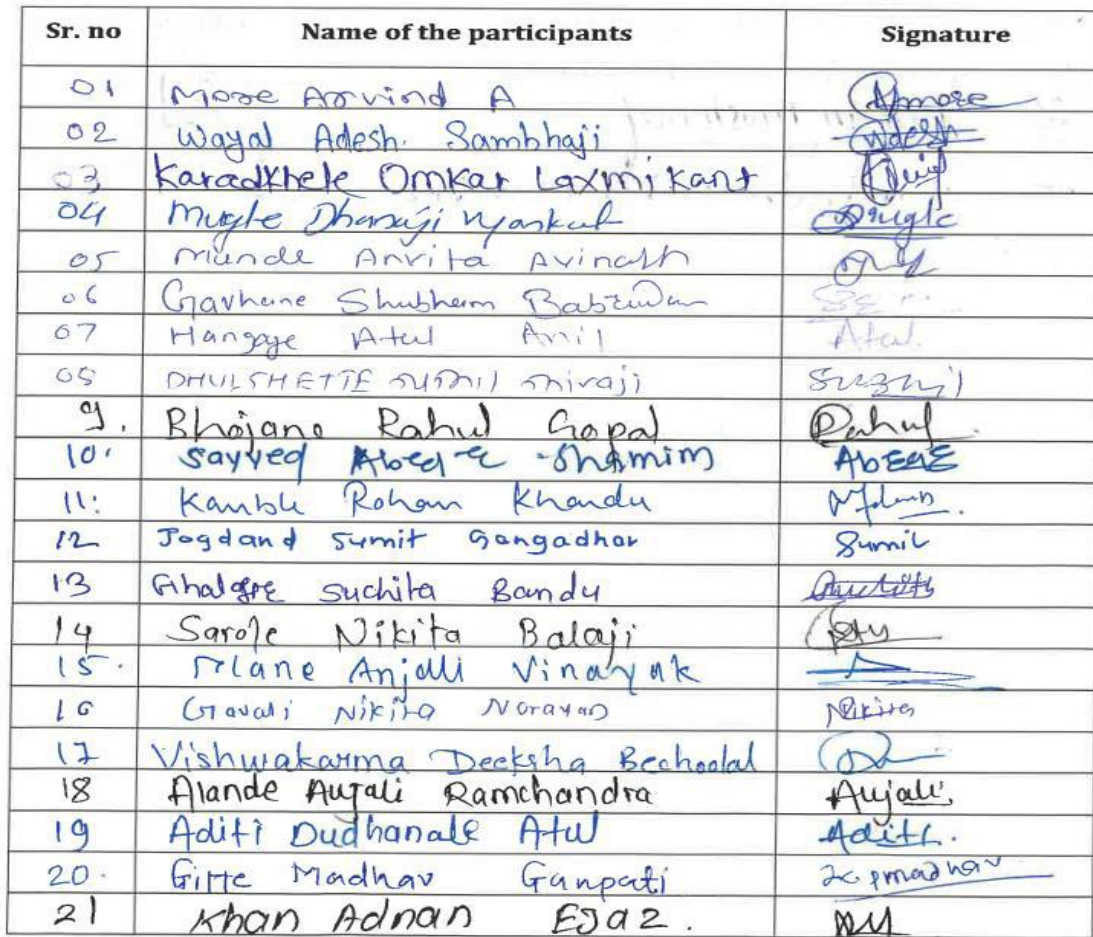 Sr. no Name of the participants Signature
01 More Arvind A Amore
02 Wayal Adesh. Sambhaji Wadesh
03 Karadkhele Omkar Laxmikant
04 Mugle Dhanaji Vyankat Dmugle
05 Munde Anvita Avinash
06 Gavhane Shubham Babruwan
07 Hangage Atul Anil Atul.
08 DHULSHETTE sushil shivaji
9. Bhojane Rahul Gopal Rahul
10. Sayyed Abed E Shamim
11. Kamble Rohan Khandu
12 Jogdand Sumit Gangadhar Sumit
13 Suchita Bandu
14 Sarole Nikita Balaji
15. Mane Anjali Vinayak
16 Gavali Nikita Narayan Nikita
17 Vishwakarma Deeksha Bechoolal
18 Alande Anjali Ramchandra Anjali
19 Aditi Dudhanale Atul Aditi.
20. Gitte Madhav Ganpati
21 Khan Adnan EJaz.